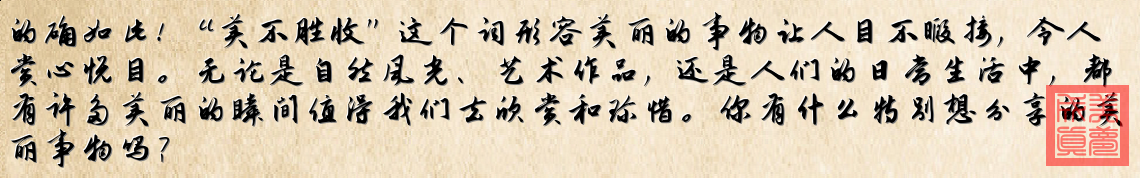 的确如此！“美不胜收”这个词形容美丽的事物让人目不暇接，令人
赏心悦目。无论是自然风光、艺术作品，还是人们的日常生活中，都
有许多美丽的瞬间值得我们去欣赏和珍惜。你有什么特别想分享的美
丽事物吗？